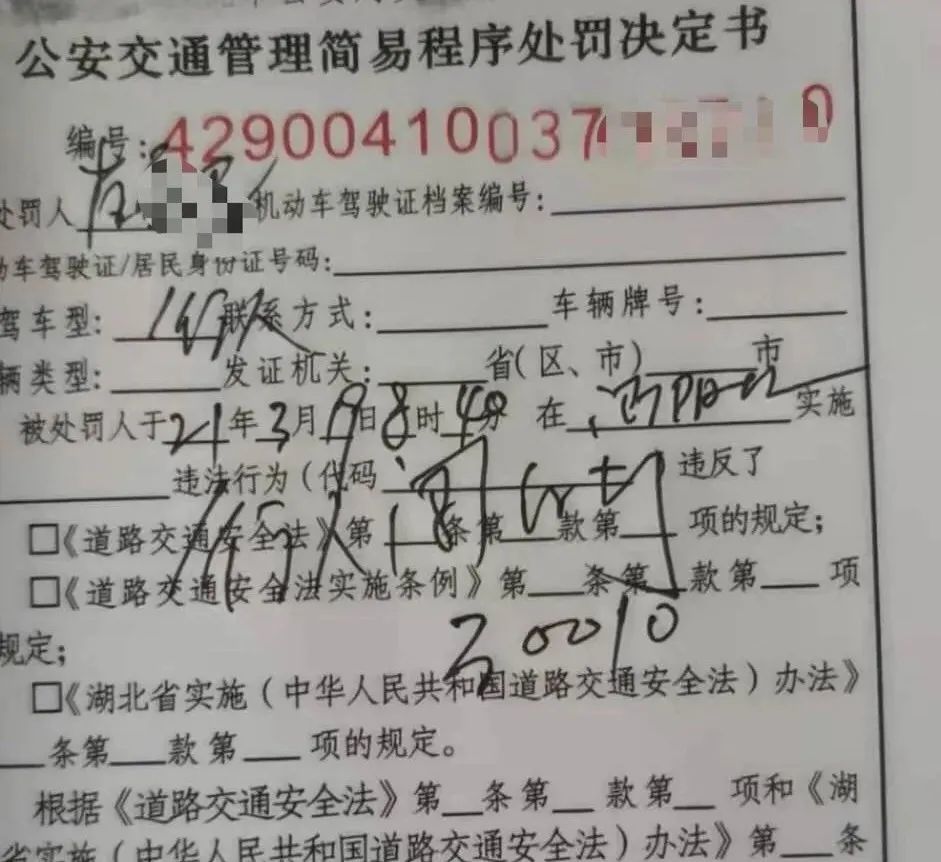 公安交通管理简易程序处罚决定书
编号:42900410037
处罚人 机动车驾驶证档案编号:
动车驾驶证/居民身份证号码:
驾车型: 联系方式: 车辆牌号:
辆类型: 发证机关: 省(区、市) 市
被处罚人于21年3月19日8时40分 在 实施
违法行为(代码 违反了
□《道路交通安全法》第 条第 款第 项的规定;
□《道路交通安全法实施条例》第 条第 款第 项
规定;
20010
□《湖北省实施(中华人民共和国道路交通安全法)办法》
条第 款第 项的规定。
根据《道路交通安全法》第 条第 款第 项和《湖
省实施(中华人民共和国道路交通安全法)办法》第 条